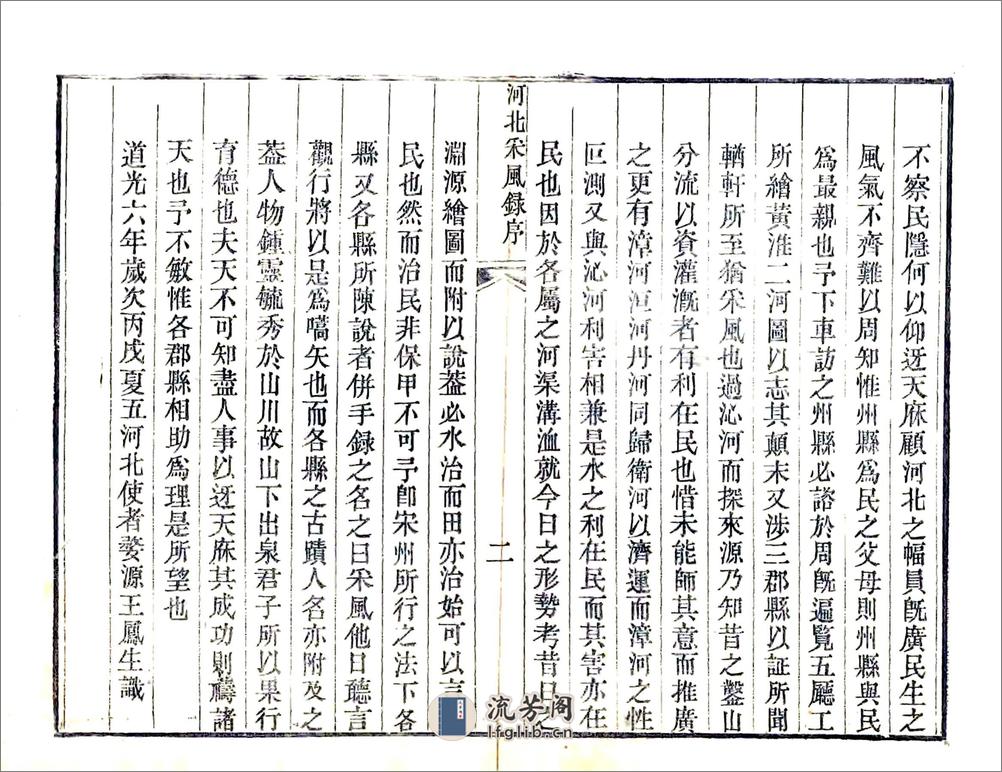 不察民隱何以仰迓天庥顧河北之幅員旣廣民生之
風氣不齊難以周知惟州縣爲民之父母則州縣與民
爲最親也予下車訪之州縣必諮於周旣遍覽五廳工
所繪黃淮二河圖以志其顛末又涉三郡縣以証所聞
輶軒所至猶采風也過沁河而探來源乃知昔之鑿山
分流以資灌漑者有利在民也惜未能師其意而推廣
之更有漳河洹河丹河同歸衛河以濟運而漳河之性
叵測又與沁河利害相兼是水之利在民而其害亦在
民也因於各屬之河渠溝洫就今日之形勢考昔日之
河北采風録序
二
淵源繪圖而附以說葢必水治而田亦治始可以言
民也然而治民非保甲不可予卽宋州所行之法下各
縣又各縣所陳說者併手録之名之曰采風他日聽言
觀行將以是爲嚆矢也而各縣之古蹟人名亦附及之
葢人物鍾靈毓秀於山川故山下出泉君子所以果行
育德也夫天不可知盡人事以迓天庥其成功則禱諸
天也予不敏惟各郡縣相助爲理是所望也
道光六年歲次丙戌夏五河北使者婺源王鳳生識
流芳阁
lfglib.cn